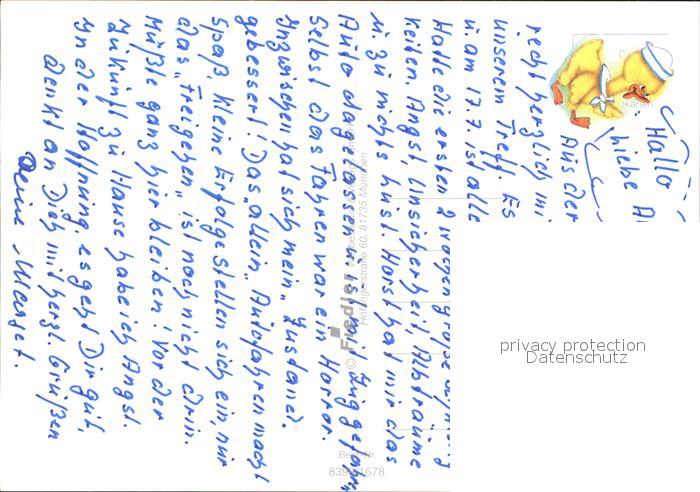 Hallo
liebe A
Aus der
recht herzlich
unserem Treff. Es
u. am 17.7. ist alle
Hatte die ersten 2 Wochen große
keiten. Angst, Unsicherheit, Albträume
u. zu nichts Lust. Horst hat mir das
Auto dagelassen u. ist mit Zug gefahren
Selbst das Fahren war ein Horror.
Inzwischen hat sich mein „Zustand"
gebessert! Das „allein" Autofahren macht
Spaß, kleine Erfolge stellen sich ein, nur
das „freigehen" ist noch nicht drin.
Müßte ganz hier bleiben! Vor der
Zukunft zu Hause habe ich Angst.
In der Hoffnung, es geht Dir gut,
denkt an Dich mit herzl. Grüßen
Deine
© Friedler
81735 München
Best.-Nr.
privacy protection
Datenschutz